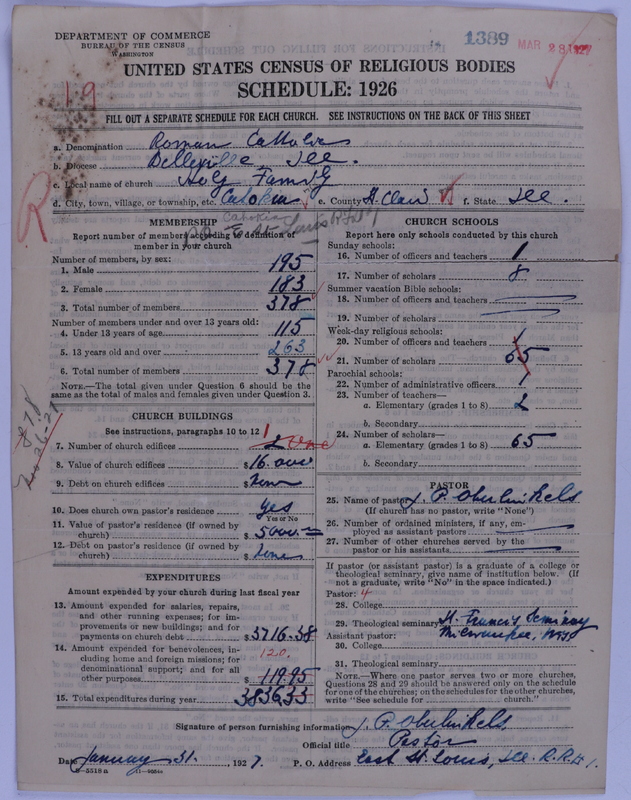 DEPARTMENT OF COMMERCE
BUREAU OF THE CENSUS
WASHINGTON
1389
MAR 28 1927
19
UNITED STATES CENSUS OF RELIGIOUS BODIES
SCHEDULE: 1926
FILL OUT A SEPARATE SCHEDULE FOR EACH CHURCH. SEE INSTRUCTIONS ON THE BACK OF THIS SHEET
a. Denomination Roman Catholic
b. Diocese Belleville, Ill.
c. Local name of church Holy Family
d. City, town, village, or township, etc. Cahokia e. County St. Clair f. State Ill.
R
MEMBERSHIP
Report number of members according to definition of member in your church
Number of members, by sex:
1. Male 195
2. Female 183
3. Total number of members 378
Number of members under and over 13 years old:
4. Under 13 years of age 115
5. 13 years old and over 263
6. Total number of members 378
NOTE.—The total given under Question 6 should be the
same as the total of males and females given under Question 3.
CHURCH BUILDINGS
See instructions, paragraphs 10 to 12
7. Number of church edifices 2 One 1
8. Value of church edifices $16.000
9. Debt on church edifices $None
10. Does church own pastor's residence Yes
Yes or No
11. Value of pastor's residence (if owned by
church) $5000
12. Debt on pastor's residence (if owned by
church) $None
EXPENDITURES
Amount expended by your church during last fiscal year
13. Amount expended for salaries, repairs,
and other running expenses; for im-
provements or new buildings; and for
payments on church debt $3716.38
14. Amount expended for benevolences, in-
cluding home and foreign missions; for
denominational support; and for all
other purposes $119.95
120.
15. Total expenditures during year 383633
CHURCH SCHOOLS
Report here only schools conducted by this church
Sunday schools:
16. Number of officers and teachers 1
17. Number of scholars 8
Summer vacation Bible schools:
18. Number of officers and teachers
19. Number of scholars
Week-day religious schools:
20. Number of officers and teachers 1
21. Number of scholars 65
Parochial schools:
22. Number of administrative officers 1
23. Number of teachers—
a. Elementary (grades 1 to 8) 2
b. Secondary
24. Number of scholars—
a. Elementary (grades 1 to 8) 65
b. Secondary
PASTOR
25. Name of pastor J. P. Oberwinkels
(If church has no pastor, write "None")
26. Number of ordained ministers, if any, em-
ployed as assistant pastors
27. Number of other churches served by the
pastor or his assistants
If pastor (or assistant pastor) is a graduate of a college or
theological seminary, give name of institution below. (If
not a graduate, write "No" in the space indicated.)
Pastor: 4
28. College
29. Theological seminary St. Francis Seminary
Milwaukee, Wis
Assistant pastor:
30. College
31. Theological seminary
NOTE.—Where one pastor serves two or more churches,
Questions 28 and 29 should be answered only on the schedule
for one of the churches; on the schedules for the other churches,
write "See schedule for church."
Signature of person furnishing information J. P. Oberwinkels,
Official title Pastor
Date January 31, 1927. P. O. Address East St. Louis, Ill. R.R.# 1.
8-5518 a